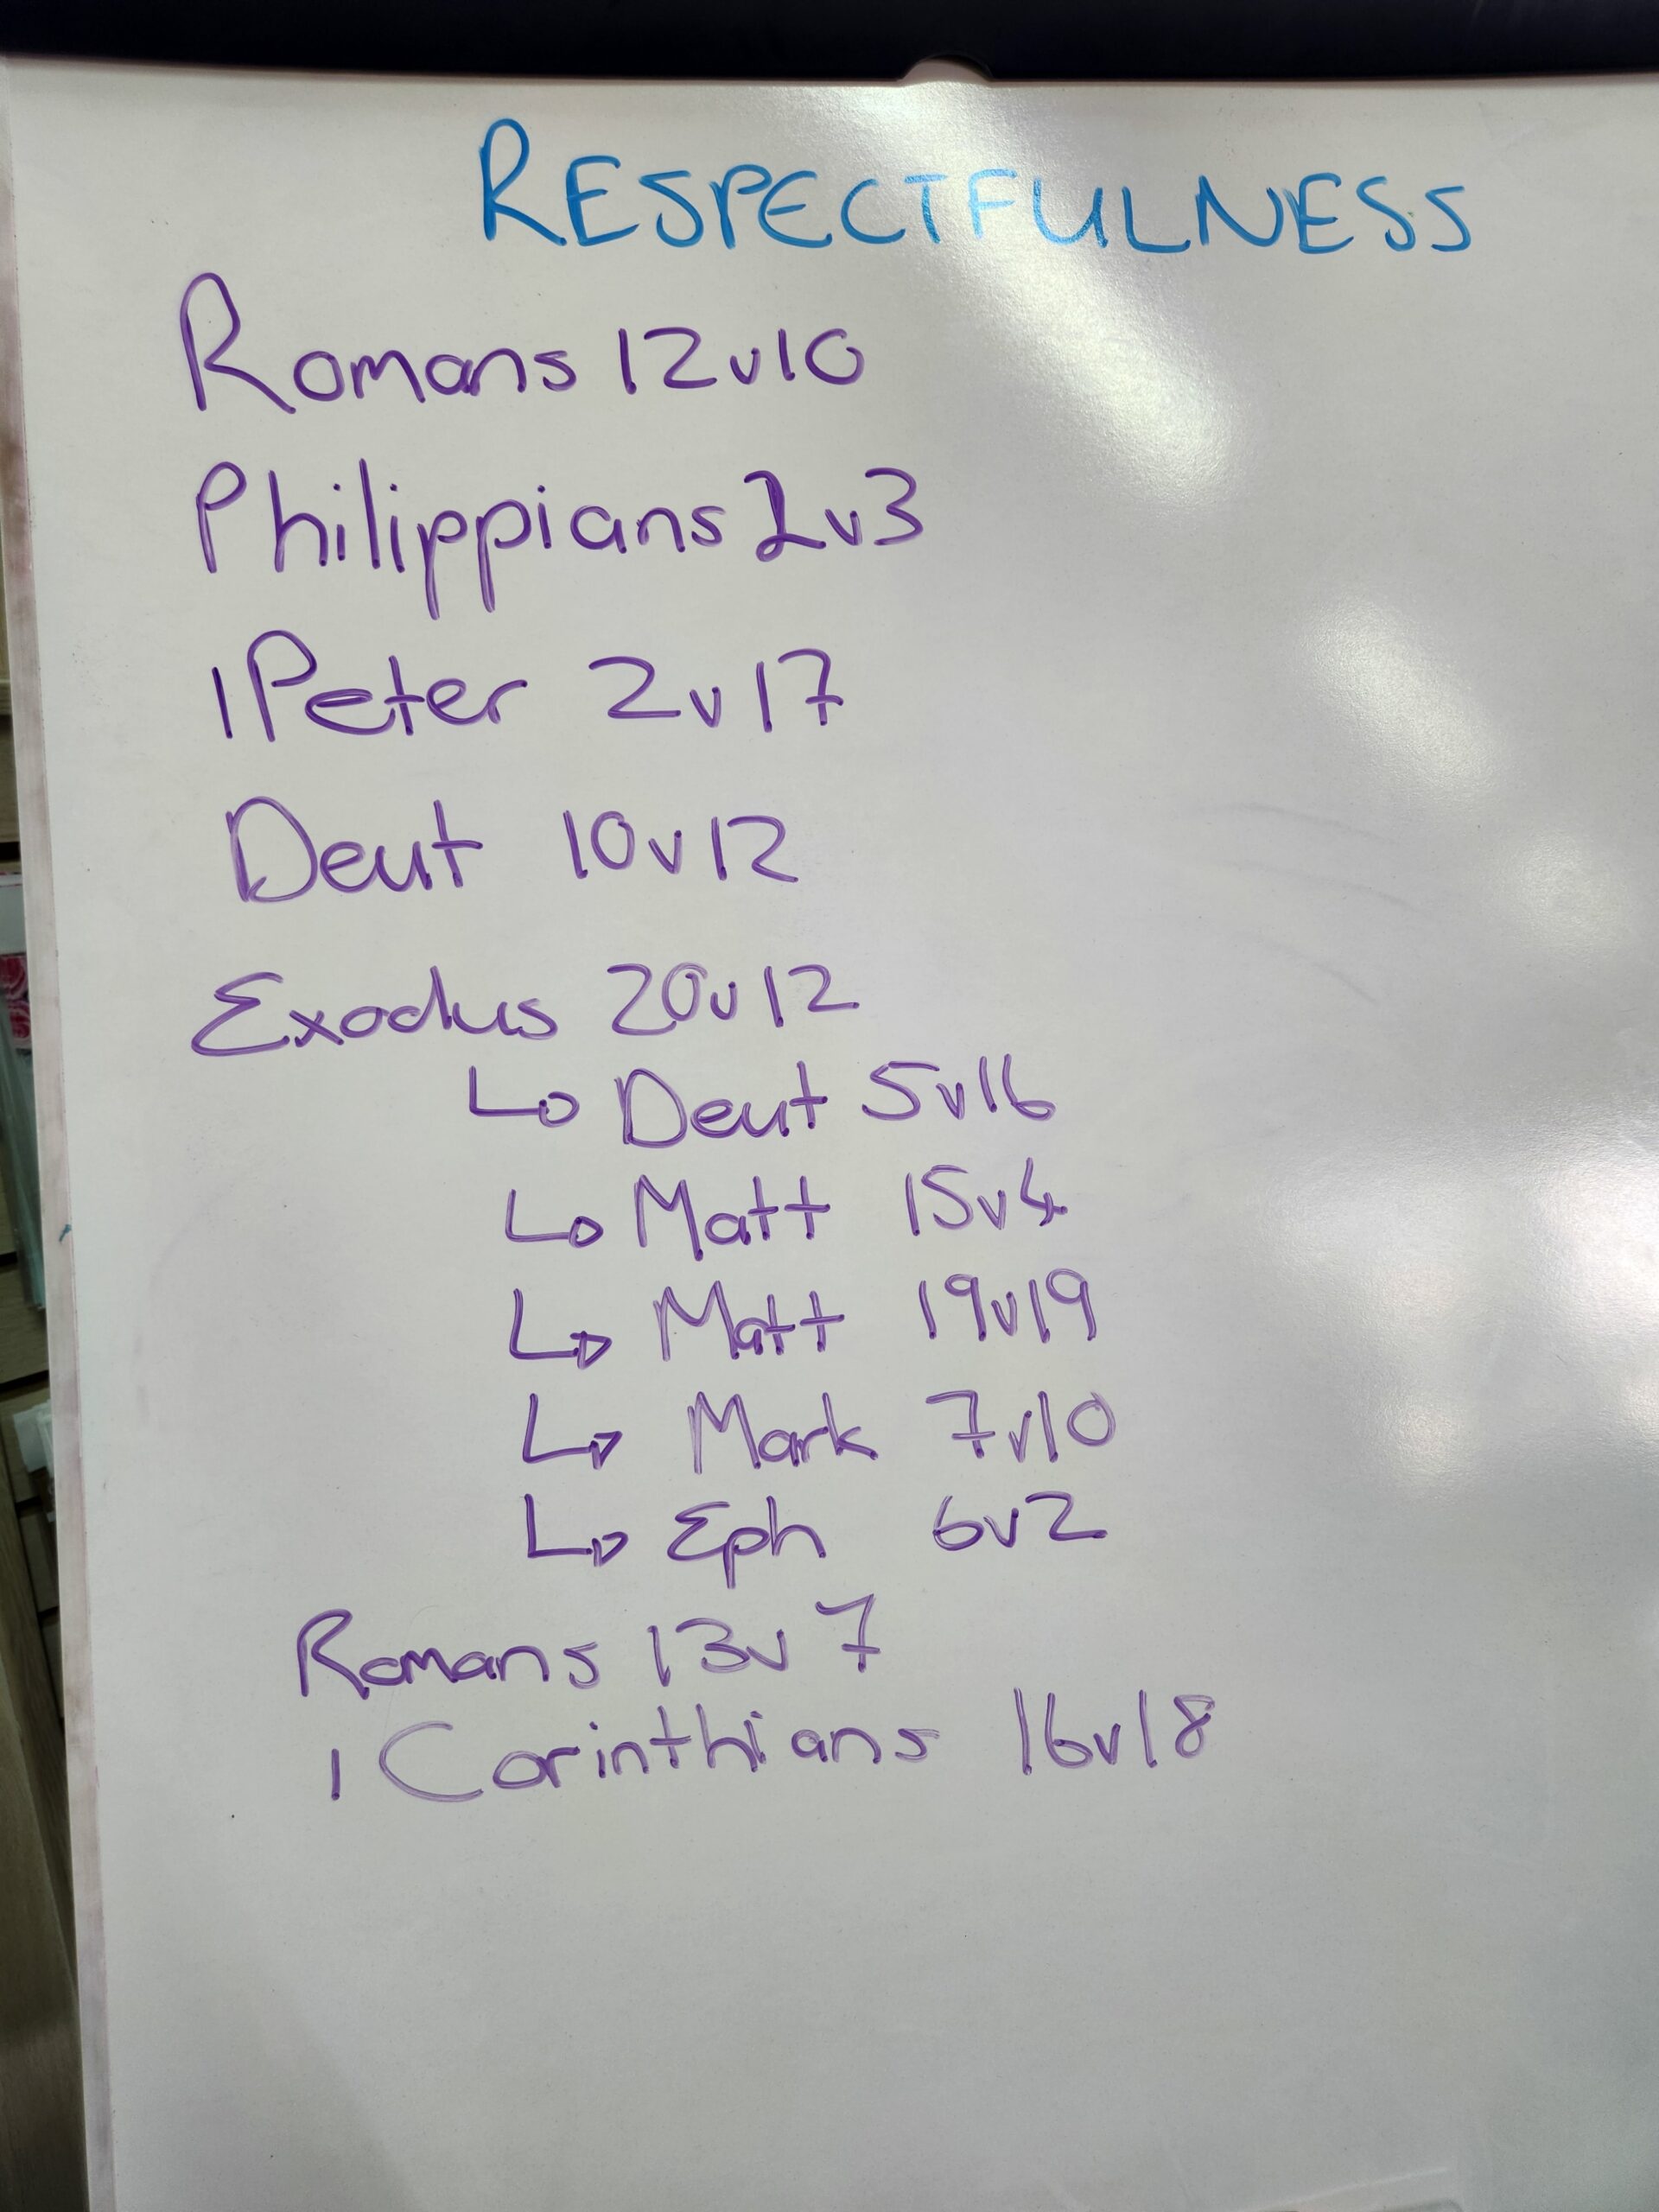 RESPECTFULNESS
Romans 12v10
Philippians 2v3
1 Peter 2v17
Deut 10v12
Exodus 20v12
↳ Deut 5v16
↳ Matt 15v4
↳ Matt 19v19
↳ Mark 7v10
↳ Eph 6v2
Romans 13v7
1 Corinthians 16v18